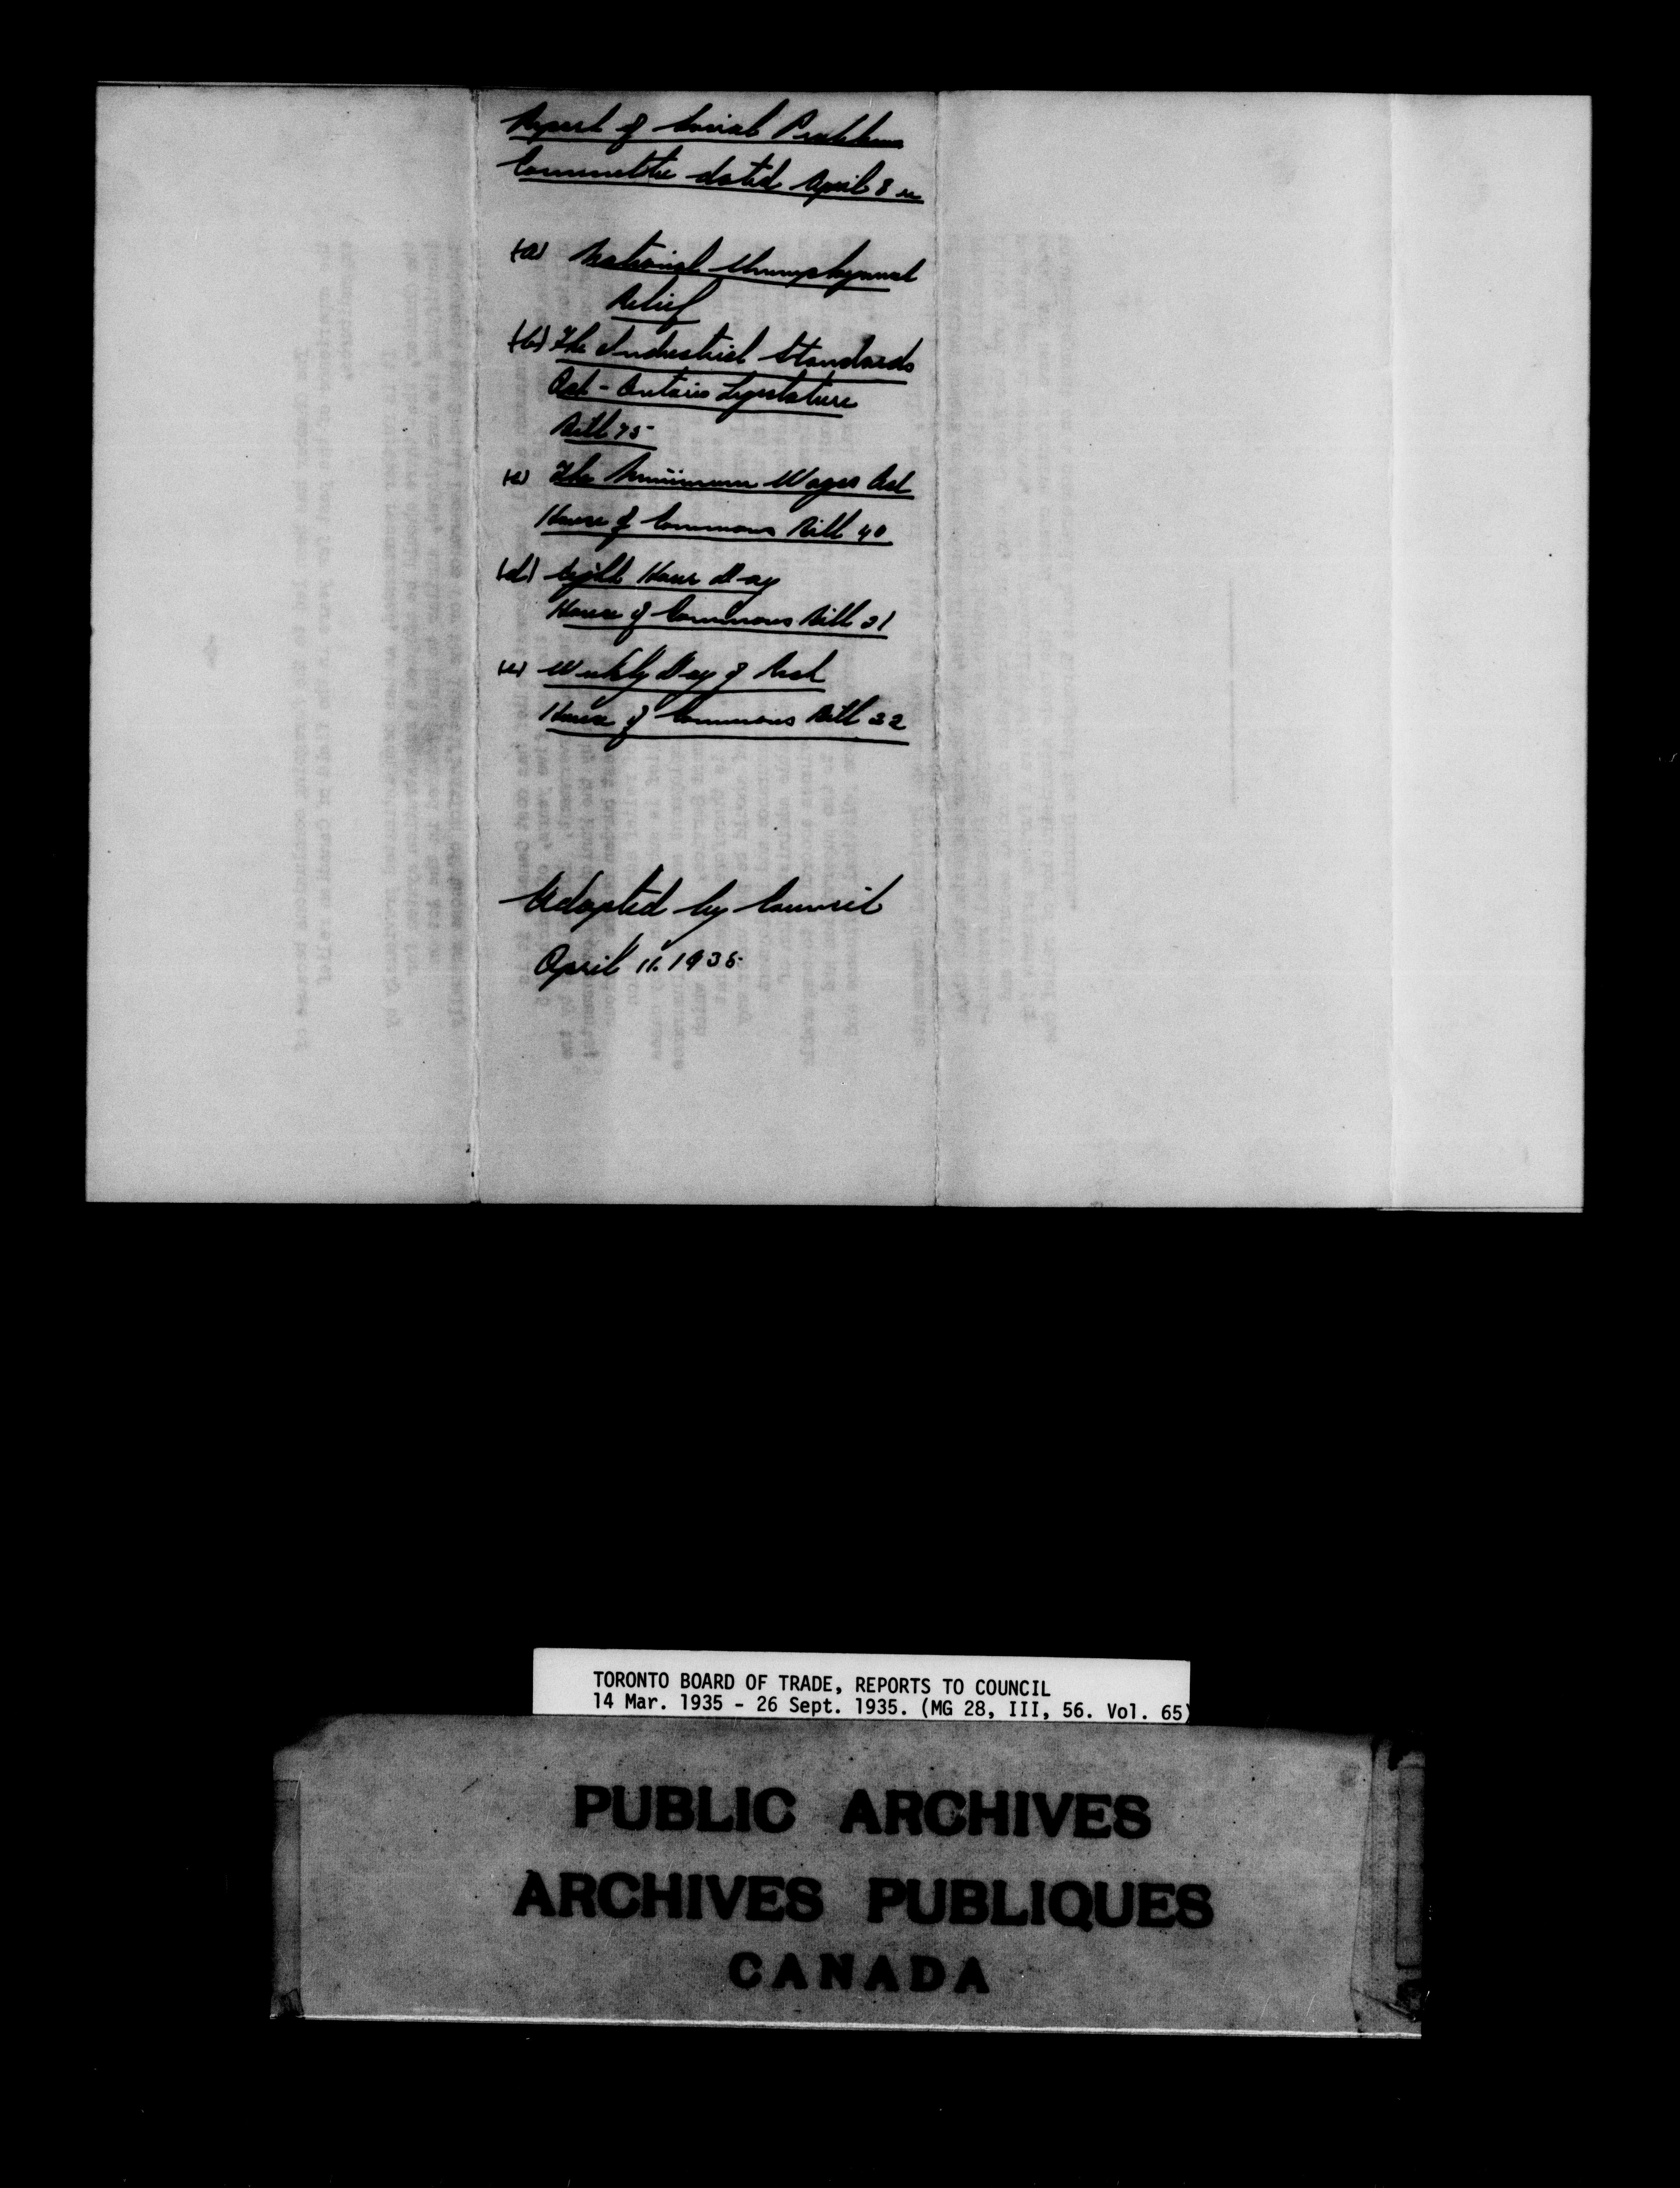 Report of Social Problems
Committee dated April 8 re
(a) National Unemployment
Relief
(b) The Industrial Standards
Act - Ontario Legislature
Bill 75
(c) The Minimum Wages Act
House of Commons Bill 40
(d) Eight Hour Day
House of Commons Bill 21
(e) Weekly Day of Rest
House of Commons Bill 22
Adopted by Council
April 11. 1935
TORONTO BOARD OF TRADE, REPORTS TO COUNCIL
14 Mar. 1935 - 26 Sept. 1935. (MG 28, III, 56. Vol. 65)
PUBLIC ARCHIVES
ARCHIVES PUBLIQUES
CANADA